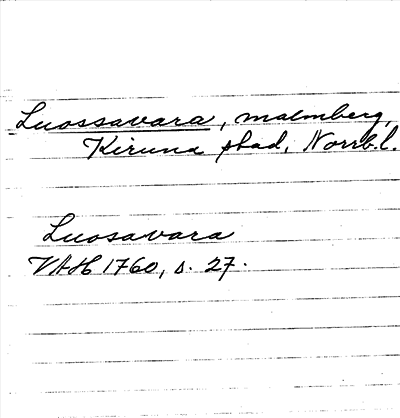 Luossavara, malmberg,
Kiruna stad, Norrb.l.
Luosavara
VAH 1760, s. 27.